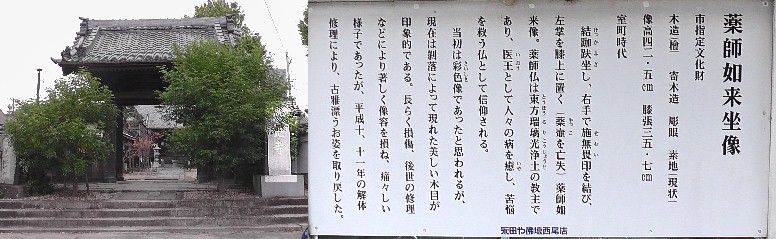 薬師如来坐像
市指定文化財
木造(檜) 寄木造 彫眼 素地(現状)
像高四二・五㎝ 膝張三五・七㎝
室町時代
結跏趺坐し、右手で施無畏印を結び、
左掌を膝上に置く(薬壺を亡失)薬師如
来像。薬師仏は東方瑠璃光浄土の教主で
あり、医王として人々の病を癒し、苦悩
を救う仏として信仰される。
当初は彩色像であったと思われるが、
現在は剥落によって現れた美しい木目が
印象的である。長らく損傷、後世の修理
などにより著しく像容を損ね、痛々しい
様子であったが、平成十、十一年の解体
修理により、古雅漂うお姿を取り戻した。
太田や佛壇西尾店